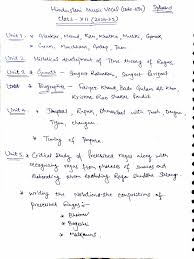 Hindustani Music Vocal (Code-034) Syllabus
Class - XII (2024-25)
Unit 1 • Alankar, Meend, Kan, Khatka, Murki, Gamak
• Gram, Murchhana, Alap, Tan
Unit 2 • Historical development of Time theory of Ragas.
Unit 3 • Granth - Sangeet Ratnakar, Sangeet Parijat
• Biographies - Faiyaz Khan, Bade Ghulam Ali Khan,
Krishna Rao Shankar Pandit
Unit 4 • Jhaptal, Rupak, Dhamar with Thah, Dugun,
Tigun, Chaugun
• Tuning of Tanpura
Unit 5 • Critical study of Prescribed Ragas along with
recognizing Ragas from phrases of swaras and
elaborating them
• Writing the Notation the compositions of
prescribed Ragas -
• Bhairav
• Bageshri
• Malkauns